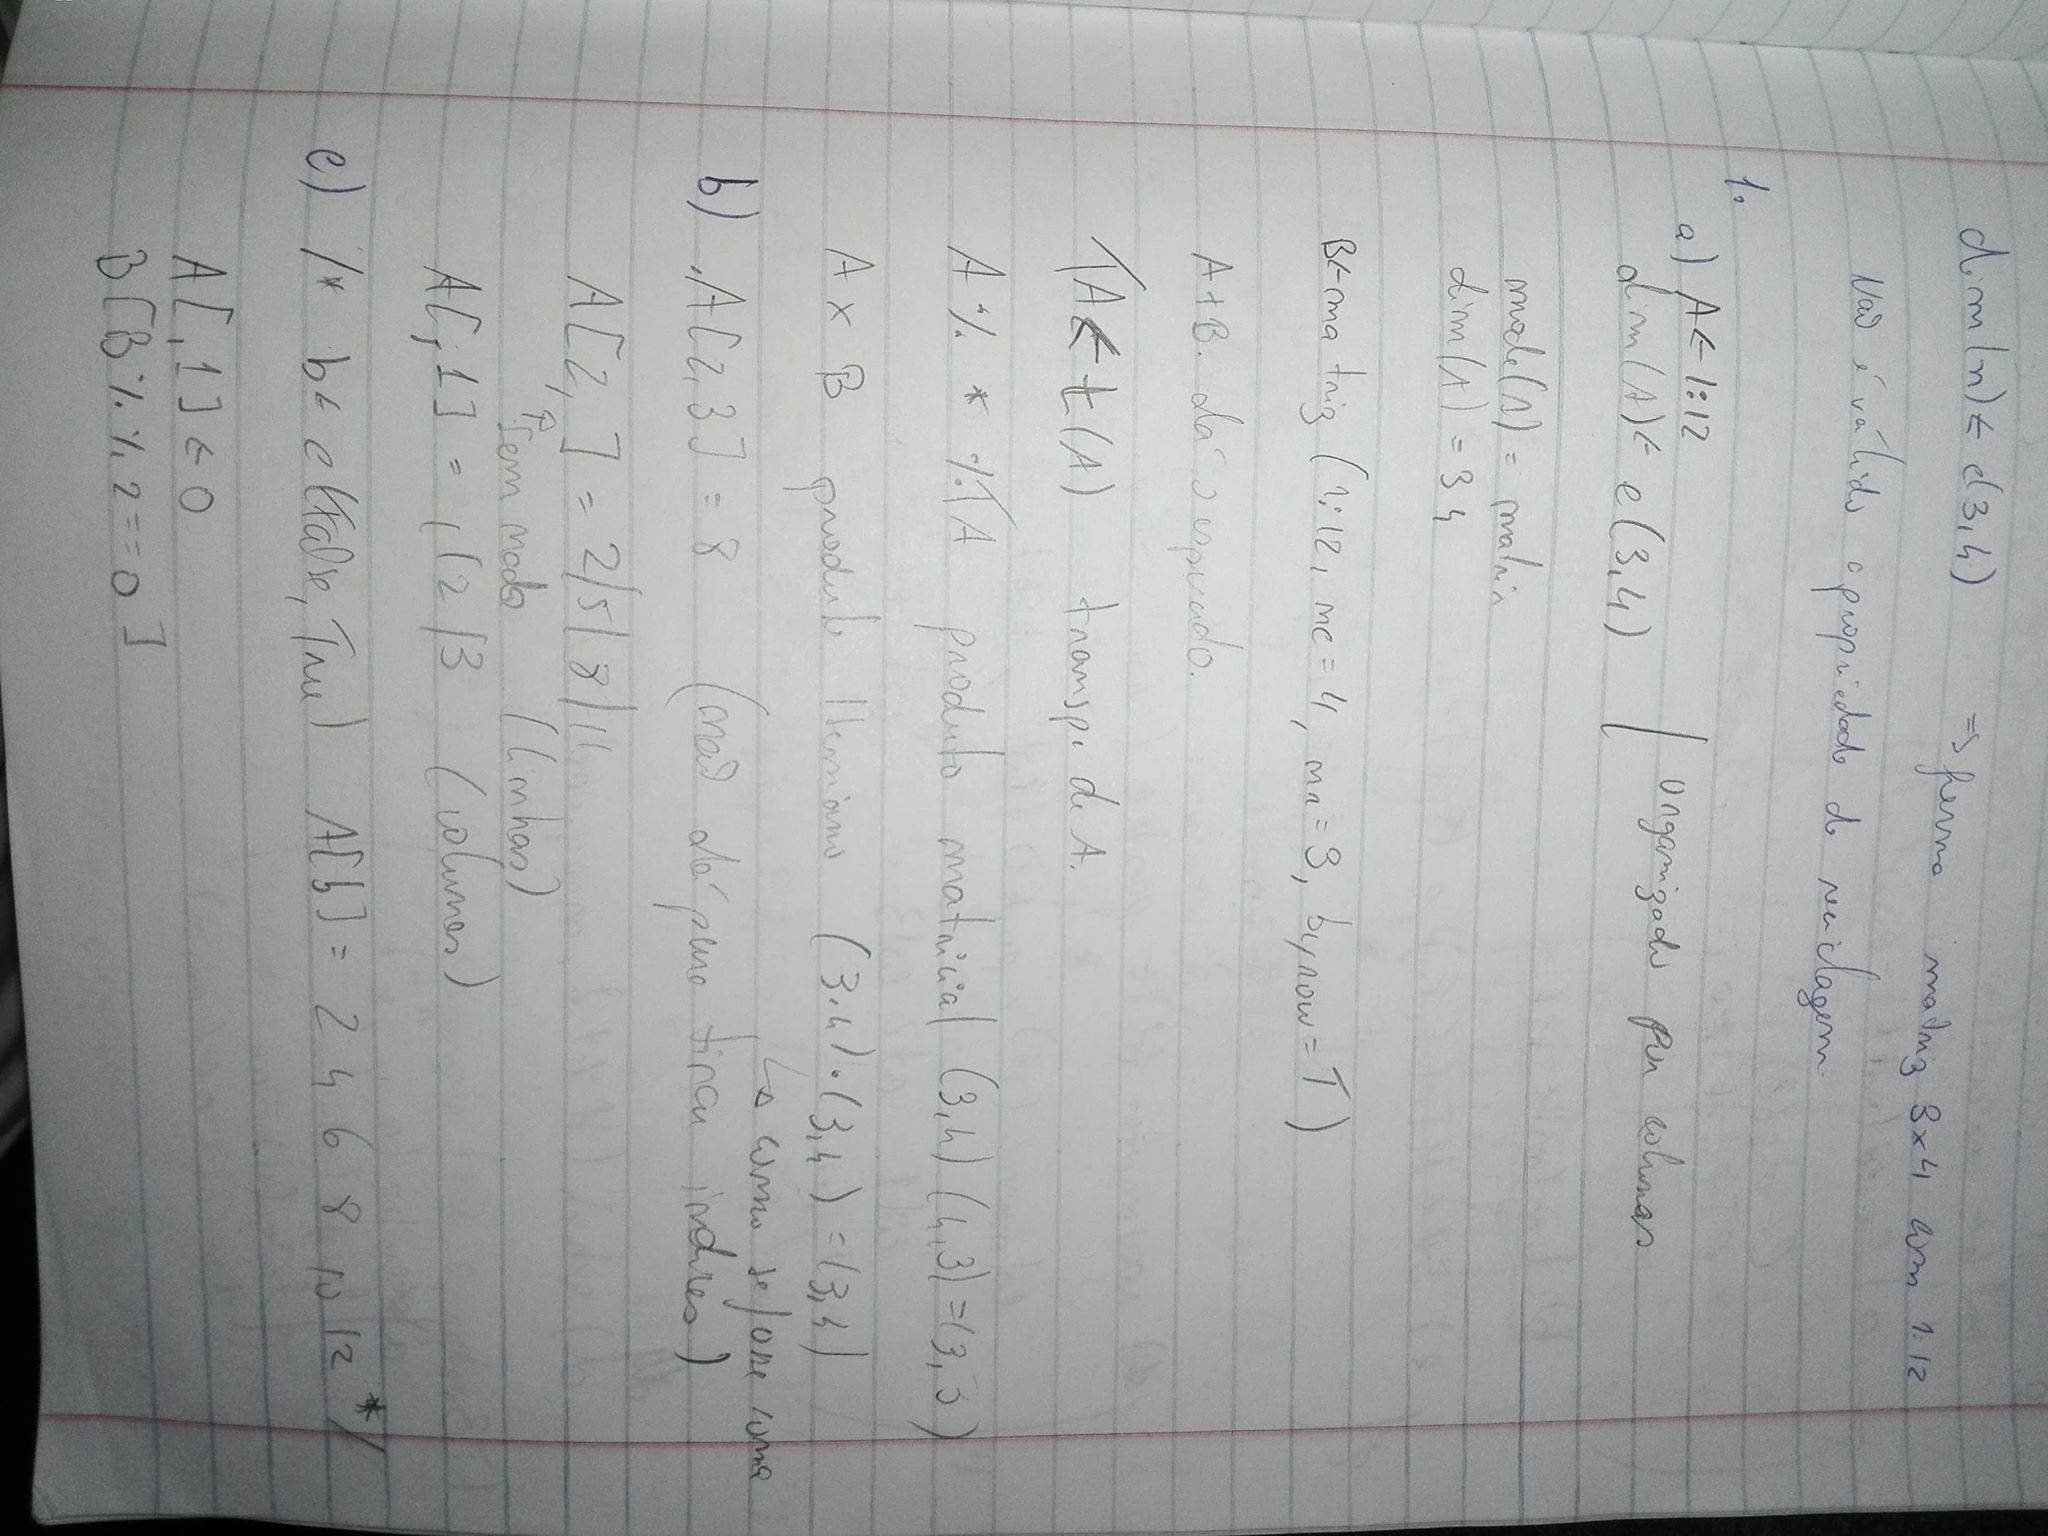 dim(n) ← c(3,4) => forma matriz 3x4 com 1:12
Não é válido a propriedade de reciclagem.
1.
a) A ← 1:12
dim(A) ← c(3,4) | organizado por colunas
mode(A) = matrix
dim(A) = 3 4
B ← matriz (1:12, nc = 4, nr = 3, byrow = T)
A + B. dá o esperado.
TA ← t(A) transp. de A.
A %*% TA produto matricial (3,4) (4,3) = (3,3)
A x B produto (3,4).(3,4) = (3,4)
↳ como se fosse soma
b) .A[2,3] = 8 (não dá para tirar indices)
A[2, ] = 2/5/8/11
↑sem nada (linhas)
A[,1] = 1/2/3 (colunas)
c) /* b ← c(False, True) A[b] = 2 4 6 8 10 12 */
A[,1] ← 0
B[B%%2==0]